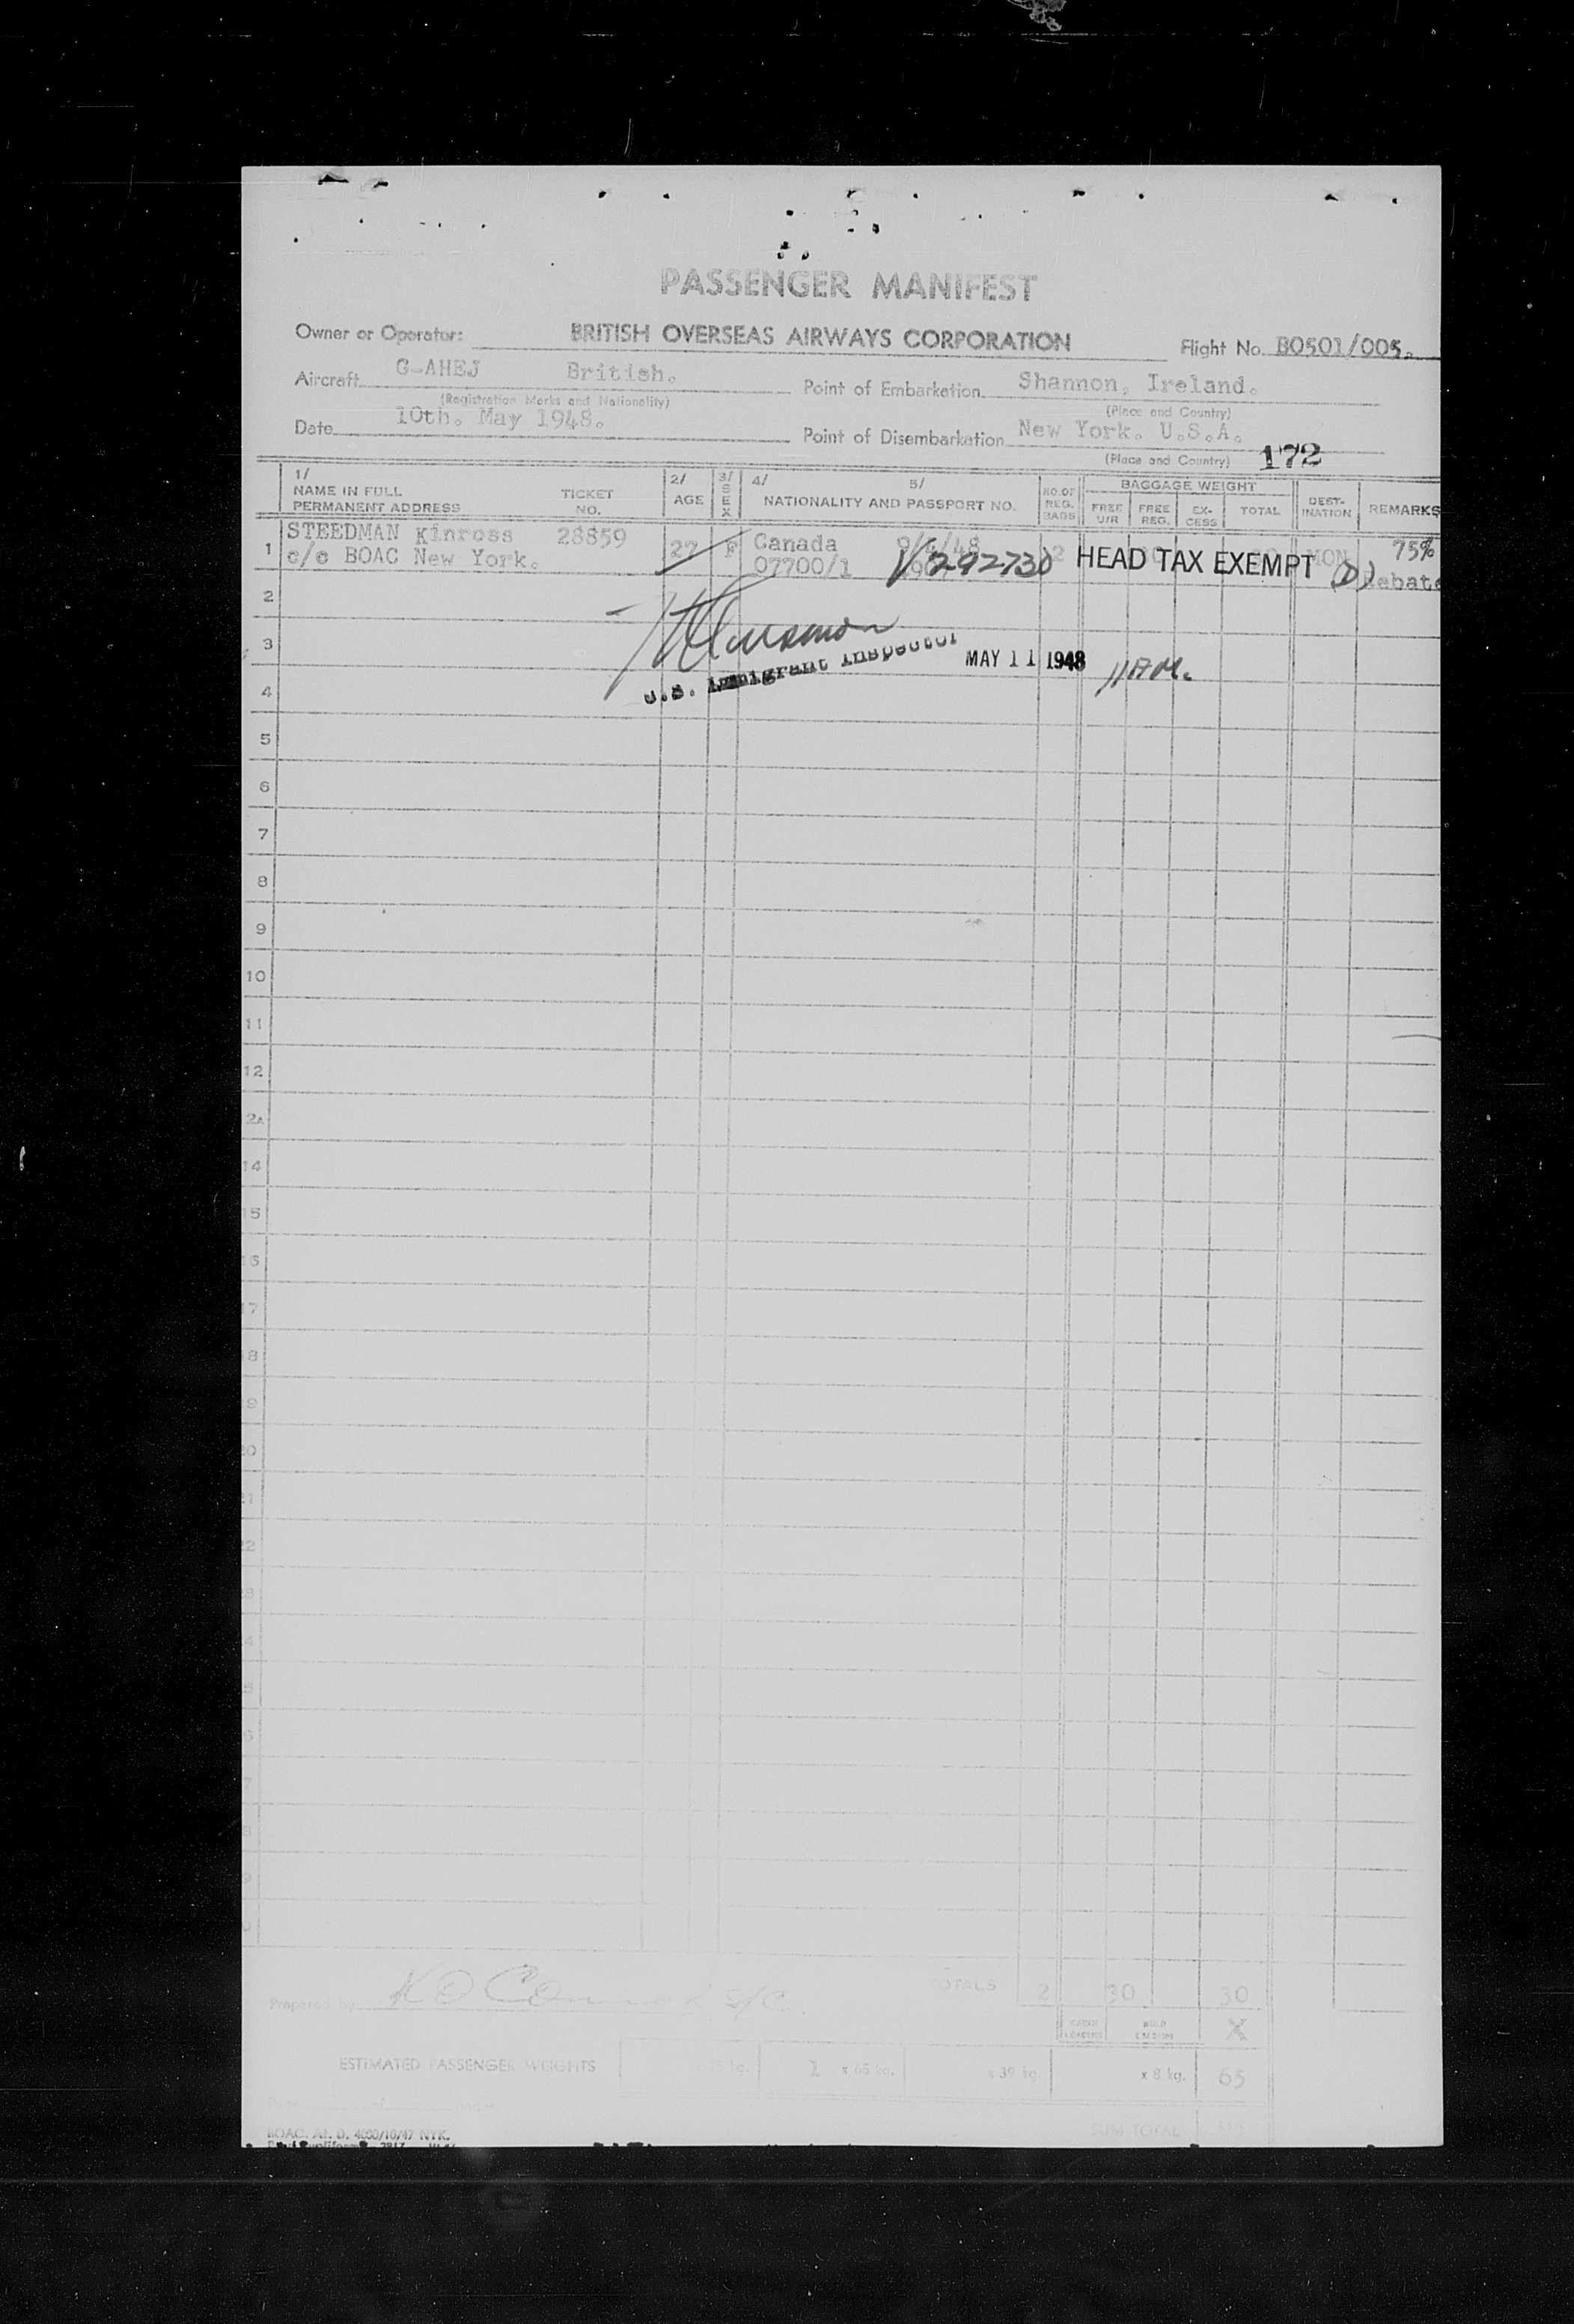 PASSENGER MANIFEST
Owner or Operator: BRITISH OVERSEAS AIRWAYS CORPORATION Flight No. BO501/005.
Aircraft G-AHEJ British. Point of Embarkation Shannon, Ireland.
(Registration Marks and Nationality) (Place and Country)
Date 10th. May 1948. Point of Disembarkation New York. U.S.A.
(Place and Country) 172
1/ NAME IN FULL PERMANENT ADDRESS TICKET NO. 2/ AGE 3/ SEX 4/ 5/ NATIONALITY AND PASSPORT NO. NO. OF REG. BAGS BAGGAGE WEIGHT FREE U/R FREE REG. EX-CESS TOTAL DEST-INATION REMARKS
1 STEEDMAN Kinross 28859 27 F Canada 75%
c/o BOAC New York. 07700/1 V292730 2 HEAD TAX EXEMPT MON (D) Rebate
2
3
U.S. Immigrant Inspector MAY 11 1948 11 AM.
4
5
6
7
8
9
10
11
12
2A
14
15
TOTALS 2 30 30
Prepared by
X
ESTIMATED PASSENGER WEIGHTS 1 x 65 kg. x 39 kg. x 8 kg. 65
SUM TOTAL
BOAC. At. D. 4000/10/47 NYK.